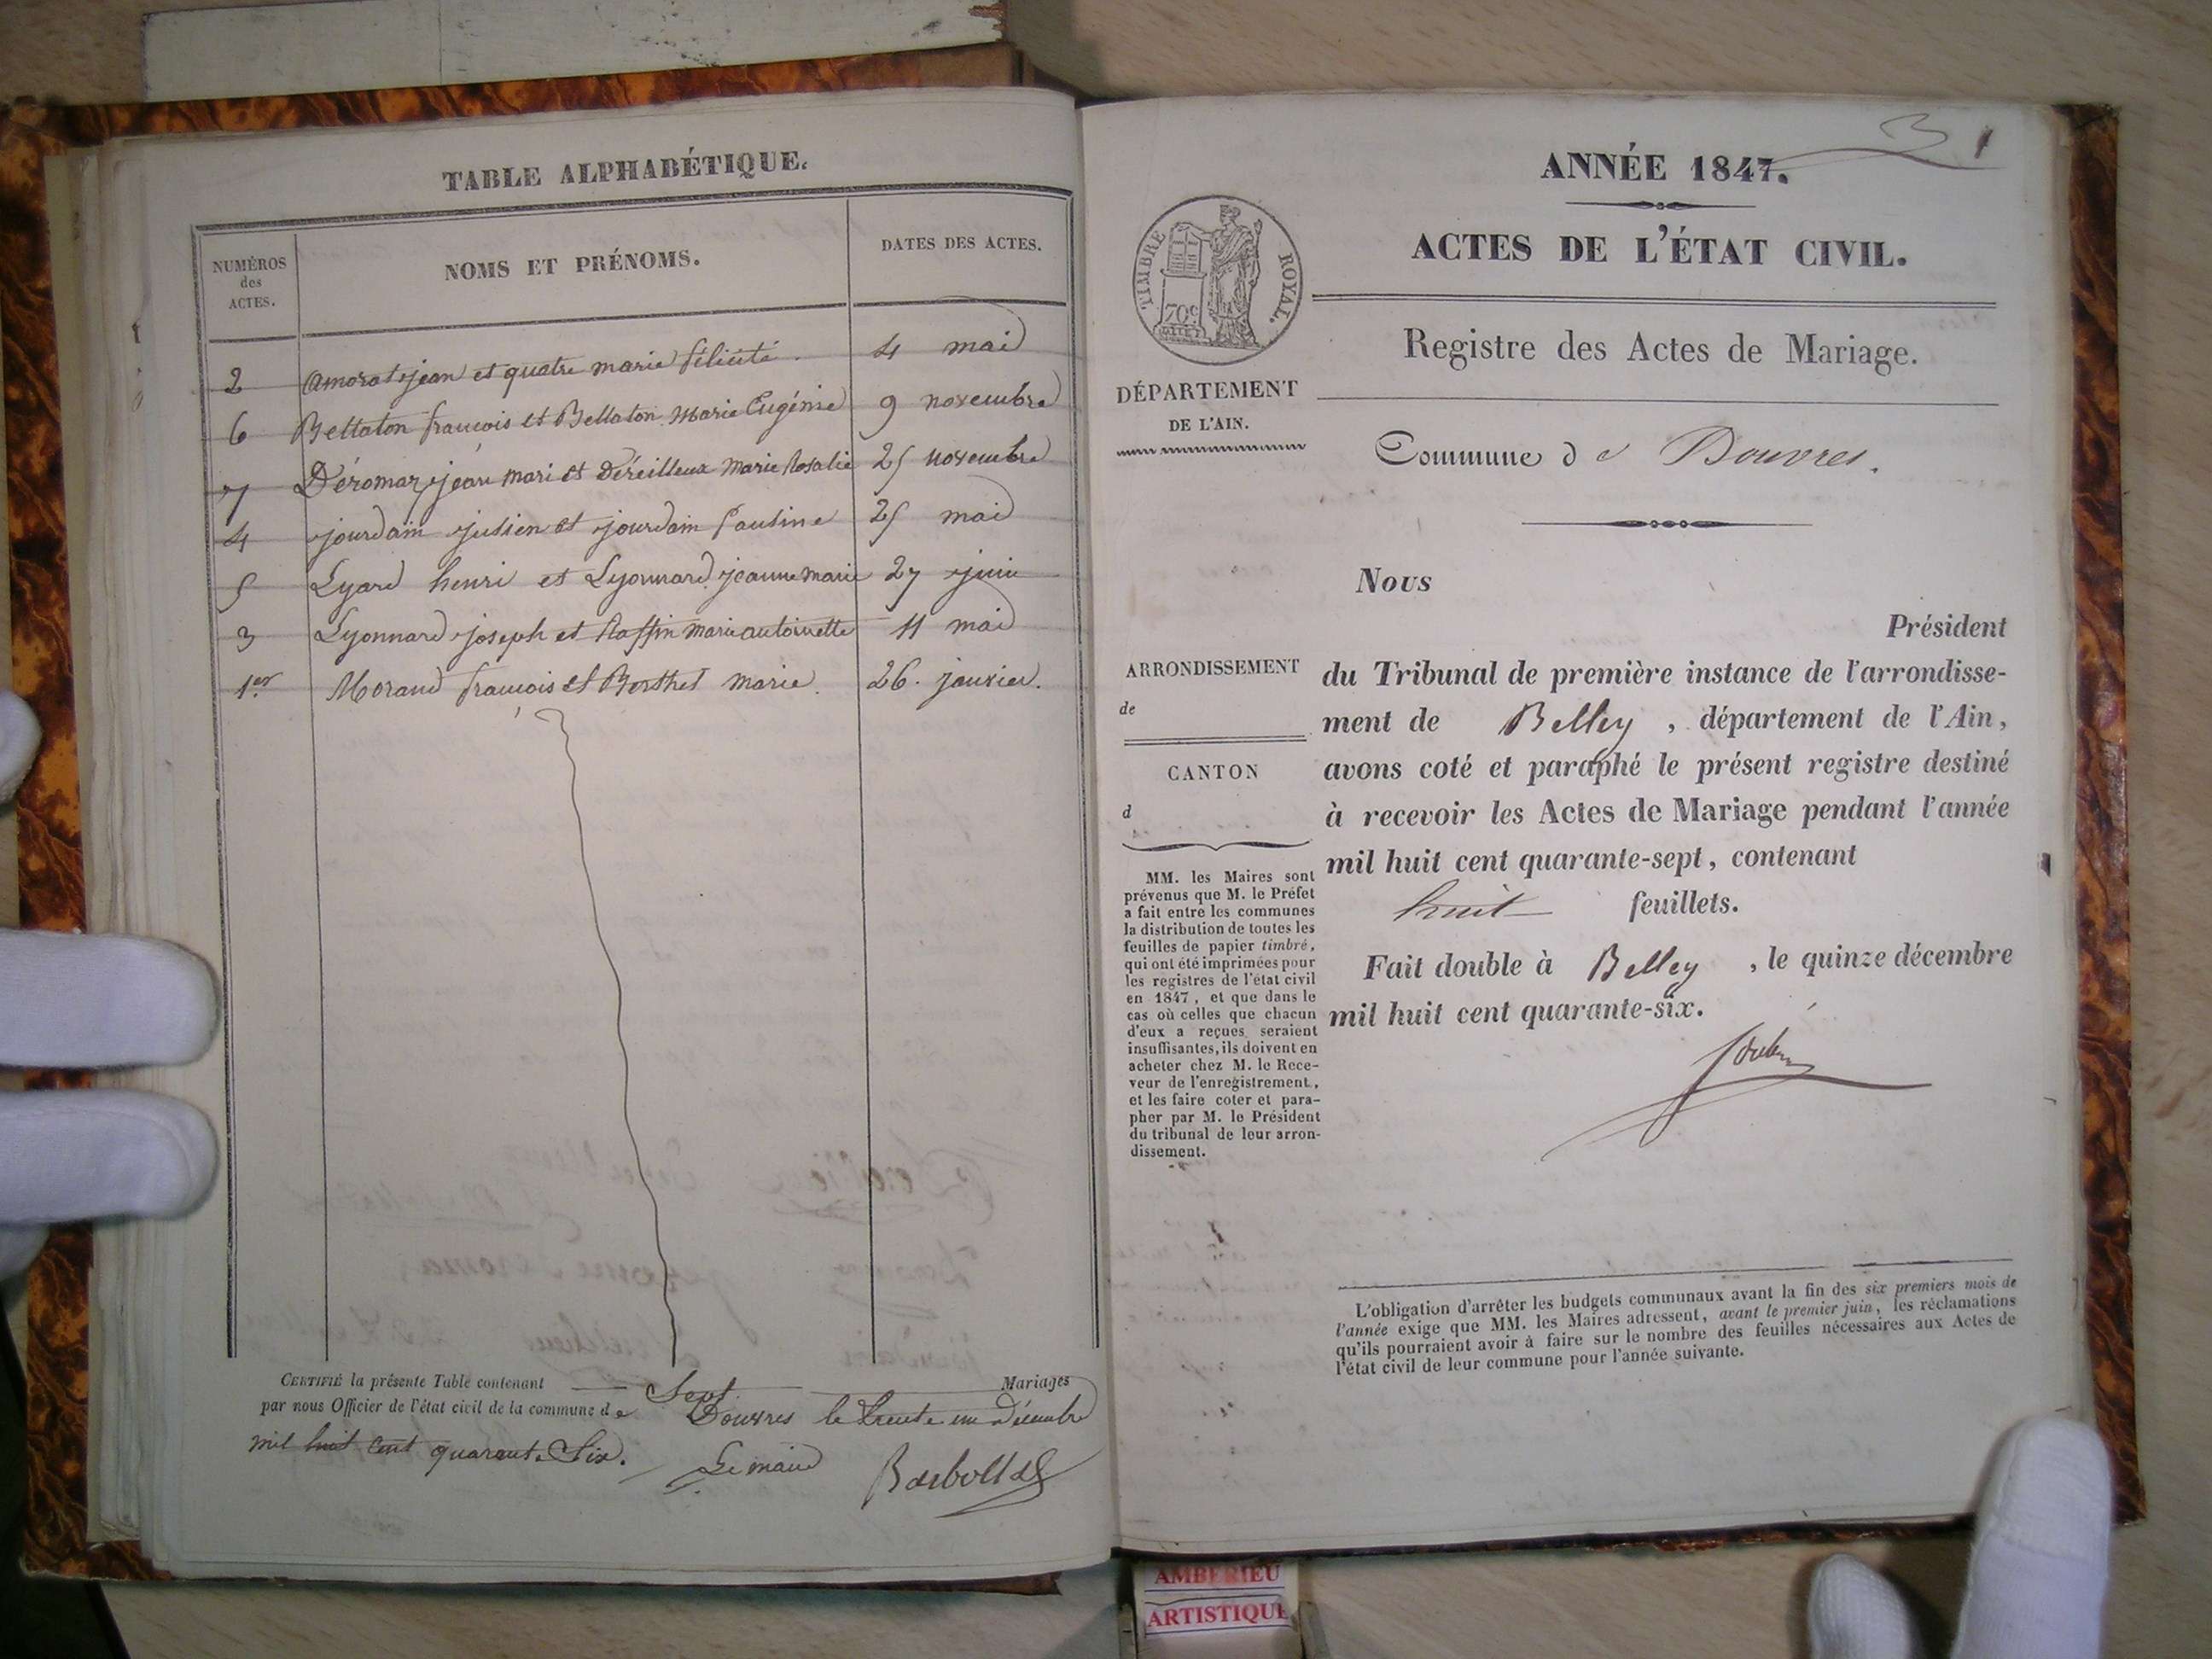 TABLE ALPHABÉTIQUE.
NUMÉROS
des
ACTES.
NOMS ET PRÉNOMS.
DATES DES ACTES.
2 Amorat jean et quatre marie félicité. 4 mai
6 Bellaton françois et Bellaton Marie Eugénie 9 novembre
7 Déromaz jean mari et Déreilleux Marie Rosalie 25 novembre
4 jourdain julien et jourdain Pauline 25 mai
5 Lyard henri et Lyonnard jeanne marie 27 juin
3 Lyonnard joseph et Raffin marie antoinette 11 mai
1er Morand françois et Berthet marie. 26. janvier.
CERTIFIÉ la présente Table contenant Sept Mariages
par nous Officier de l'état civil de la commune de Douvres le trente un Décembre
mil huit cent quarante Six.
Le maire
3 1
ANNÉE 1847.
ACTES DE L'ÉTAT CIVIL.
TIMBRE ROYAL.
70c
Registre des Actes de Mariage.
DÉPARTEMENT
DE L'AIN.
Commune de Douvres.
Nous
Président
ARRONDISSEMENT
de
CANTON
d
du Tribunal de première instance de l'arrondisse-
ment de Belley, département de l'Ain,
avons coté et paraphé le présent registre destiné
à recevoir les Actes de Mariage pendant l'année
mil huit cent quarante-sept, contenant
huit feuillets.
Fait double à Belley, le quinze décembre
mil huit cent quarante-six.
MM. les Maires sont
prévenus que M. le Préfet
a fait entre les communes
la distribution de toutes les
feuilles de papier timbré,
qui ont été imprimées pour
les registres de l'état civil
en 1847, et que dans le
cas où celles que chacun
d'eux a reçues seraient
insuffisantes, ils doivent en
acheter chez M. le Rece-
veur de l'enregistrement,
et les faire coter et para-
pher par M. le Président
du tribunal de leur arron-
dissement.
L'obligation d'arrêter les budgets communaux avant la fin des six premiers mois de
l'année exige que MM. les Maires adressent, avant le premier juin, les réclamations
qu'ils pourraient avoir à faire sur le nombre des feuilles nécessaires aux Actes de
l'état civil de leur commune pour l'année suivante.
AMBERIEU
ARTISTIQUE